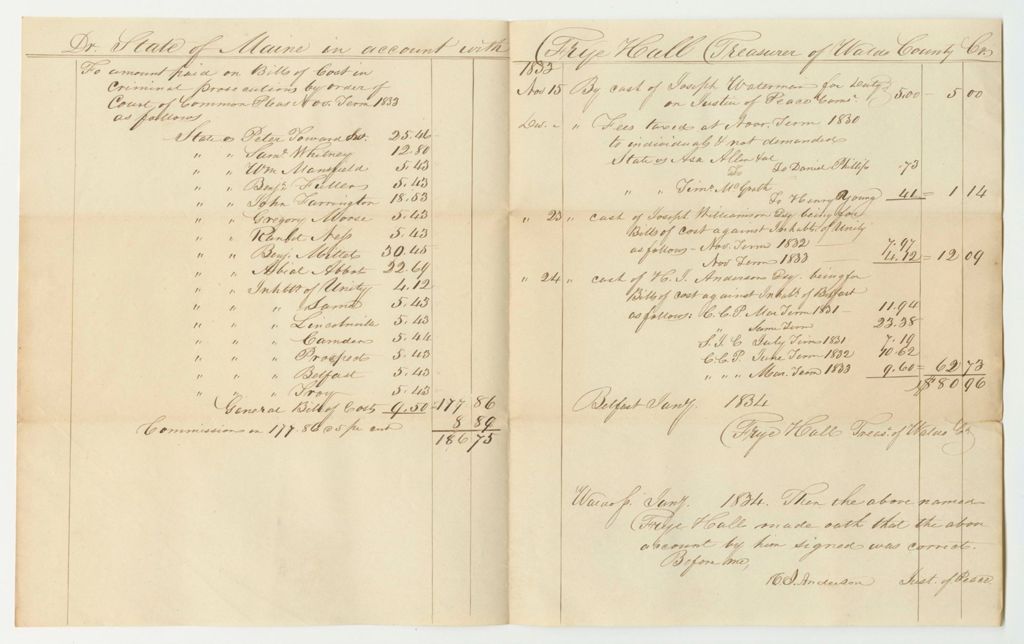 Dr. State of Maine in account with
To amount paid on Bills of Cost in
Criminal prosecutions by order of
Court of Common Pleas Nov. Term 1833
as follows
State vs Peter Toward 25.46
" " Saml. Whitney 12.80
" " Wm Mansfield 5.43
" " Benj. Fuller 5.43
" " John Farrington 18.53
" " Gregory Moose 5.43
" " Ness 5.43
" " Benj. Millet 30.45
" " Abial Abbot 22.69
" " Inhbts. of Unity 4.12
" " " Same 5.43
" " " Lincolnville 5.43
" " " Camden 5.44
" " " Prospect 5.43
" " " Belfast 5.43
" " " Troy 5.43
General Bill of Costs 9.50 = 177 86
Commission on 177.86 @ 5 per cent 8 89
186 75
Frye Hall Treasurer of Waldo County Cr.
1833
Nov 15 By cash of Joseph Waterman for Duty
on Justice of Peace Coms. 5.00 - 5 00
Dec. - " Fees taxed at Novr. Term 1830
to individuals & not demanded
State vs Asa Allen &al
To Daniel Phillips .73
" " Timo. McGrath
To Henry Young 41 = 1 14
" 23 " cash of Joseph Williamson Esq. being for
Bills of cost against Inhabts. of Unity
as follows - Nov. Term 1832 7.97
Nov Term 1833 - 4.12 = 12 09
" 24 " cash of H. J. Anderson Esq. being for
Bills of cost against Inhabs. of Belfast
as follows: C.C.P. Mar Term 1831 - 11.94
" Same Term 23.38
S.J.C July Term 1831 7.19
C.C.P. June Term 1832 10.62
" " " Mar. Term 1833 9.60 = 62 73
$ 80 96
Belfast Jany. 1834
Frye Hall Treas. of Waldo Co.
Waldo ss. Jany. 1834. Then the above named
Frye Hall made oath that the above
account by him signed was correct.
Before me,
H J. Anderson Just. of Peace